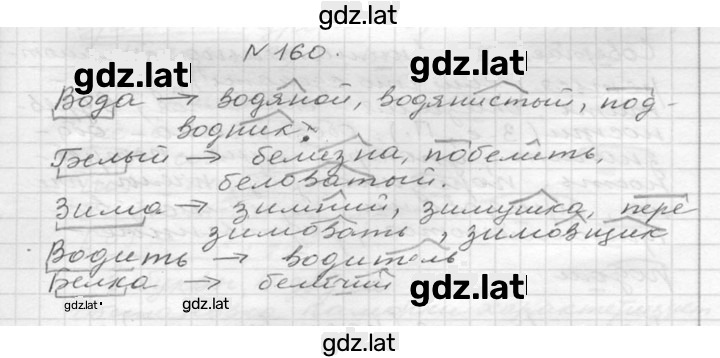 gdz.lat
N 160.
gdz.lat gdz.lat
Вода → водяной, водянистый, под-
водник.
Белый → белизна, побелить,
беловатый.
Зима → зимний, зимушка, пере
зимовать, зимовщик
Водить → водитель
Белка → беличий
gdz.lat gdz.lat gdz.lat
gdz.lat